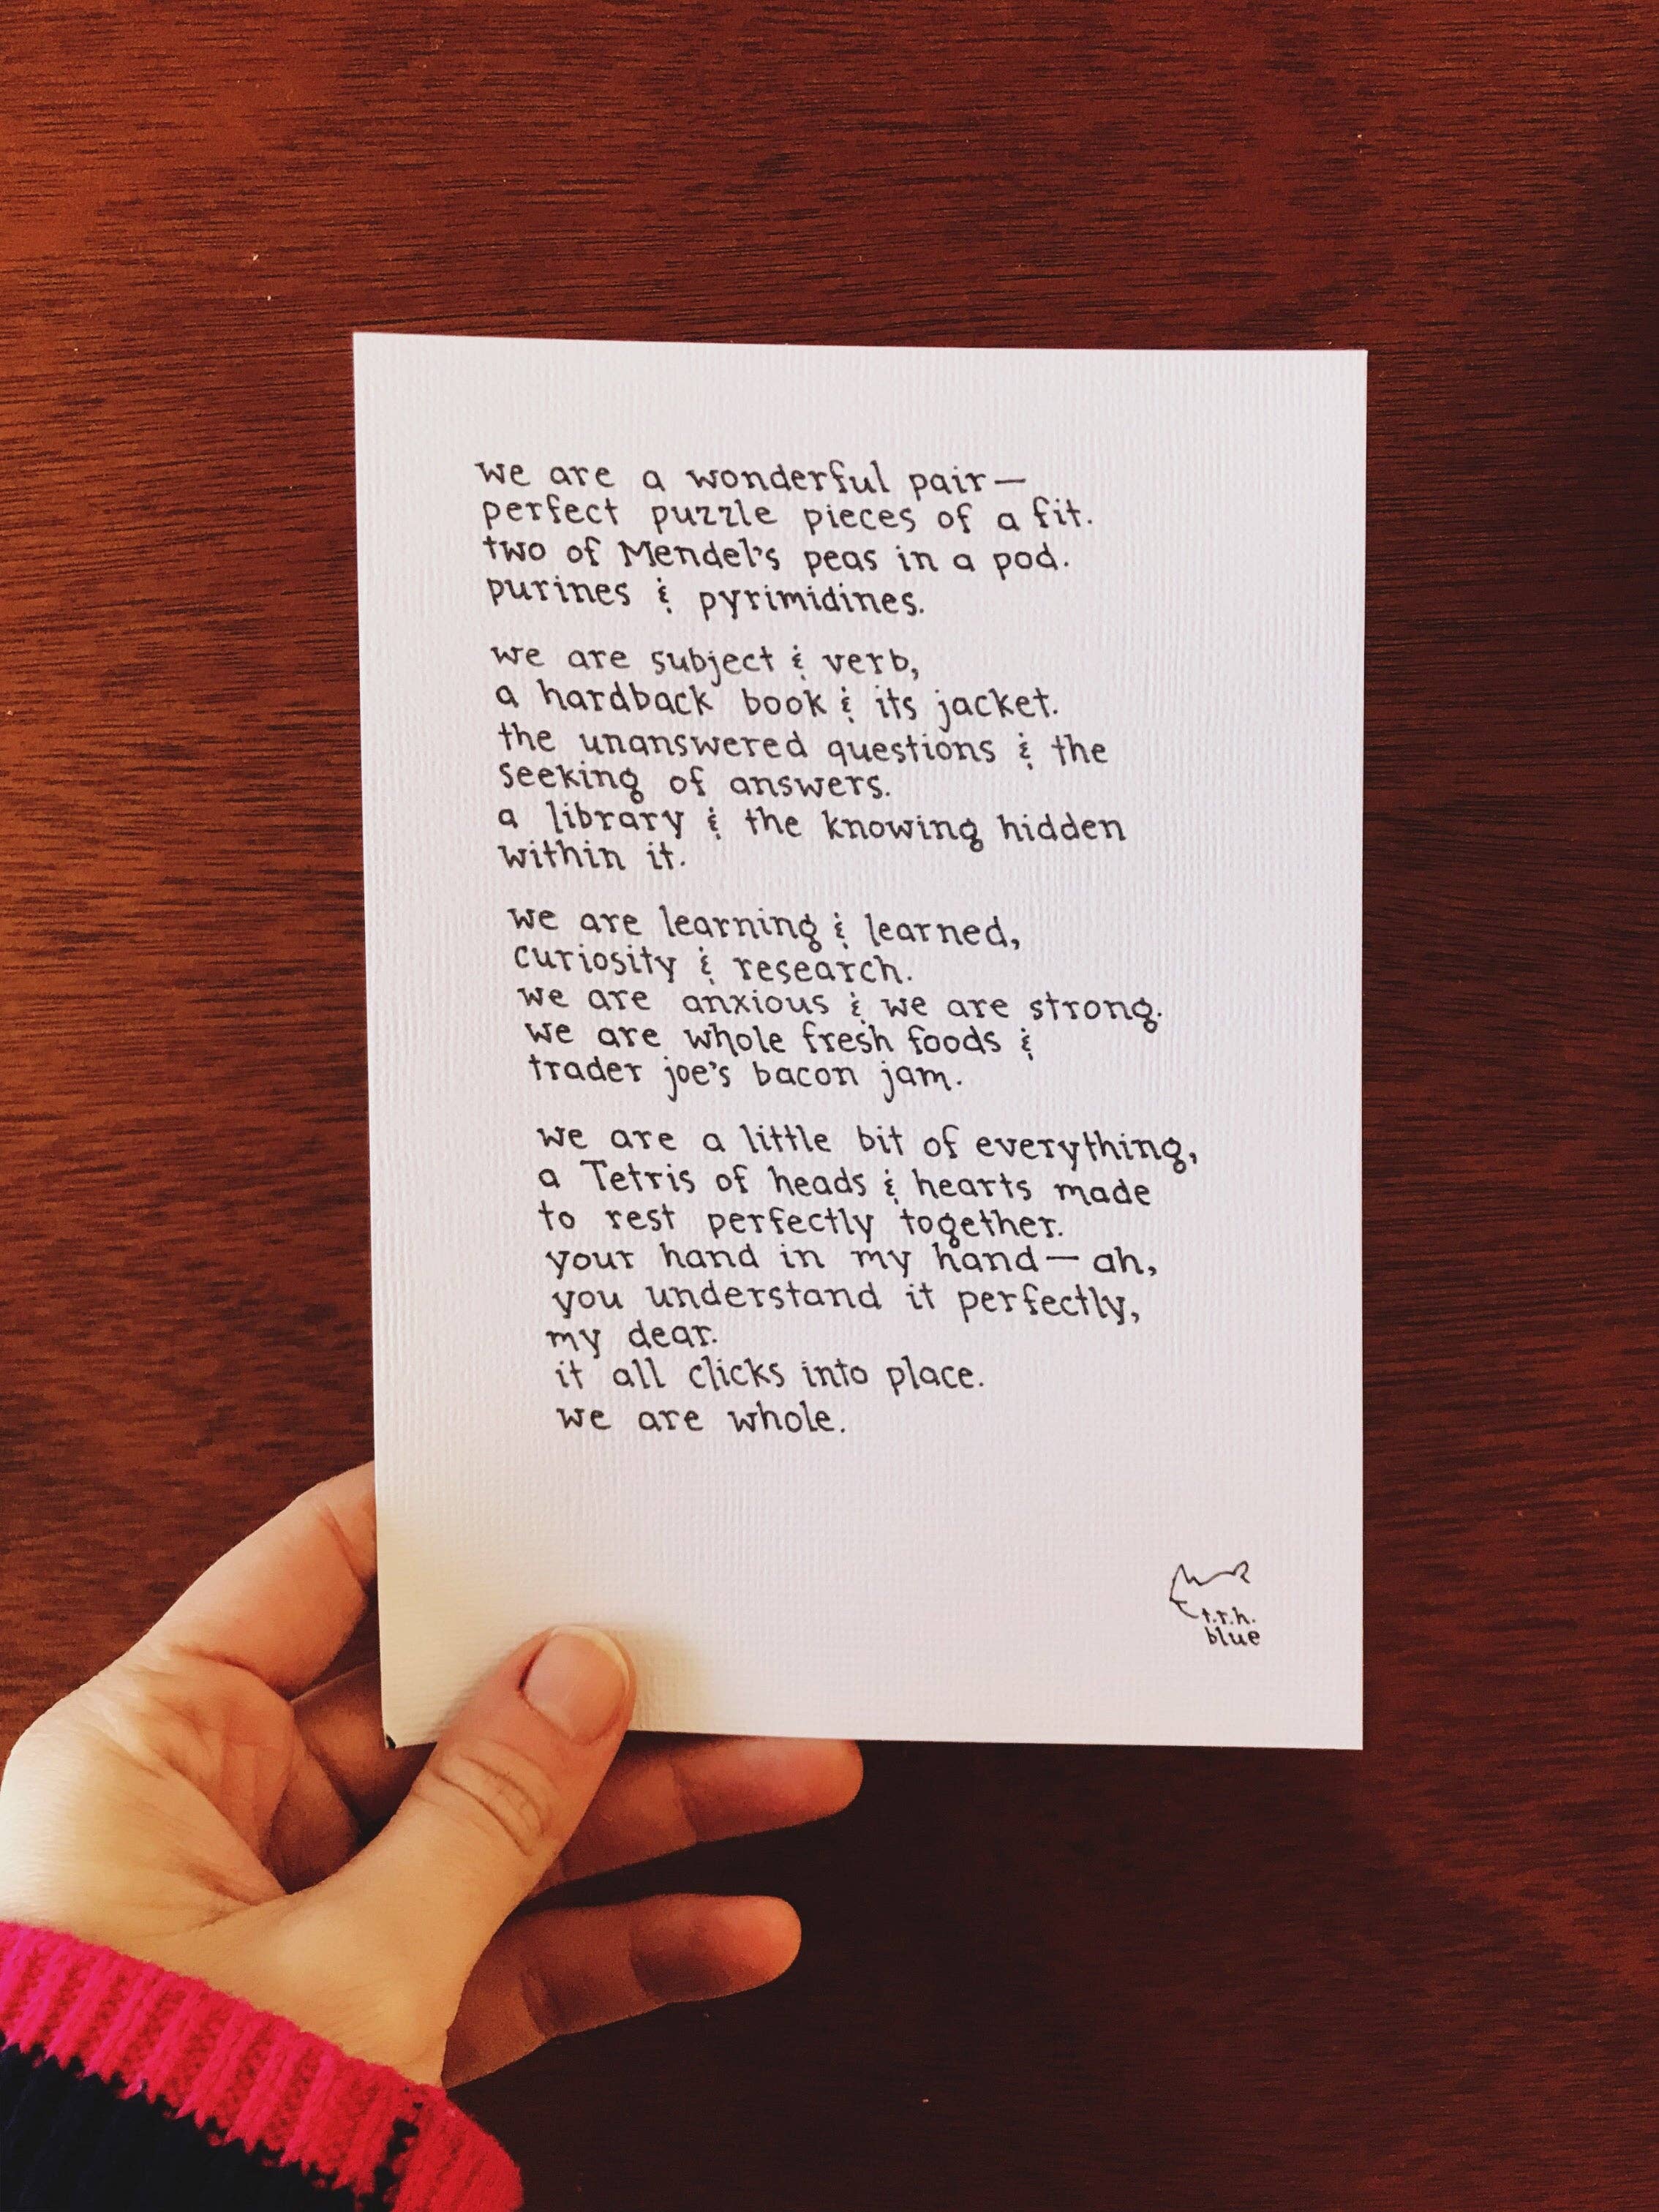 we are a wonderful pair—
perfect puzzle pieces of a fit.
two of Mendel's peas in a pod.
purines & pyrimidines.
we are subject & verb,
a hardback book & its jacket.
the unanswered questions & the
seeking of answers.
a library & the knowing hidden
within it.
we are learning & learned,
curiosity & research.
we are anxious & we are strong.
we are whole fresh foods &
trader joe's bacon jam.
we are a little bit of everything,
a Tetris of heads & hearts made
to rest perfectly together.
your hand in my hand—ah,
you understand it perfectly,
my dear.
it all clicks into place.
we are whole.
t.r.h.
blue